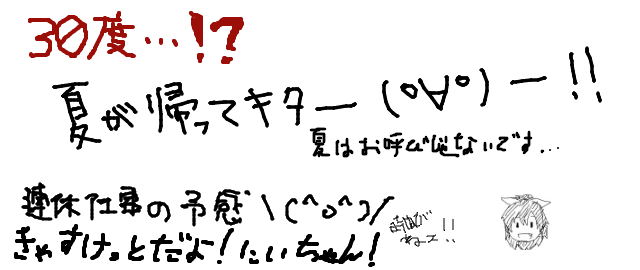 30度…!?
夏が帰ってキター(°∀°)ー!!
夏はお呼びじゃないです…
連休仕事の予感\(^o^)/
きゃすけっとだよ!にいちゃん!
時間がねェ!!